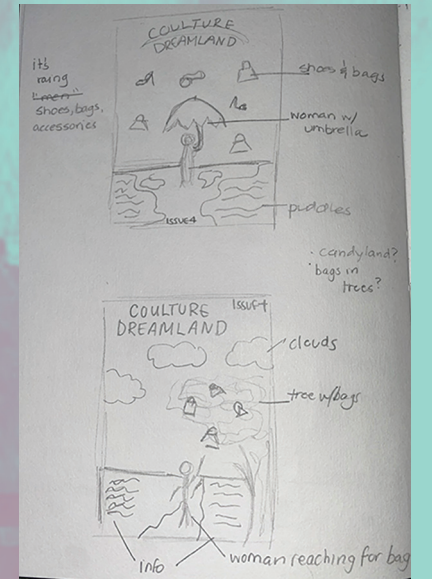 COULTURE
DREAMLAND
it's
raing
"men"
shoes, bags,
accessories
shoes & bags
woman w/
umbrella
puddles
ISSUE 4
· candyland?
· bags in
trees?
COULTURE
DREAMLAND
ISSUE 4
clouds
tree w/bags
info
woman reaching for bag